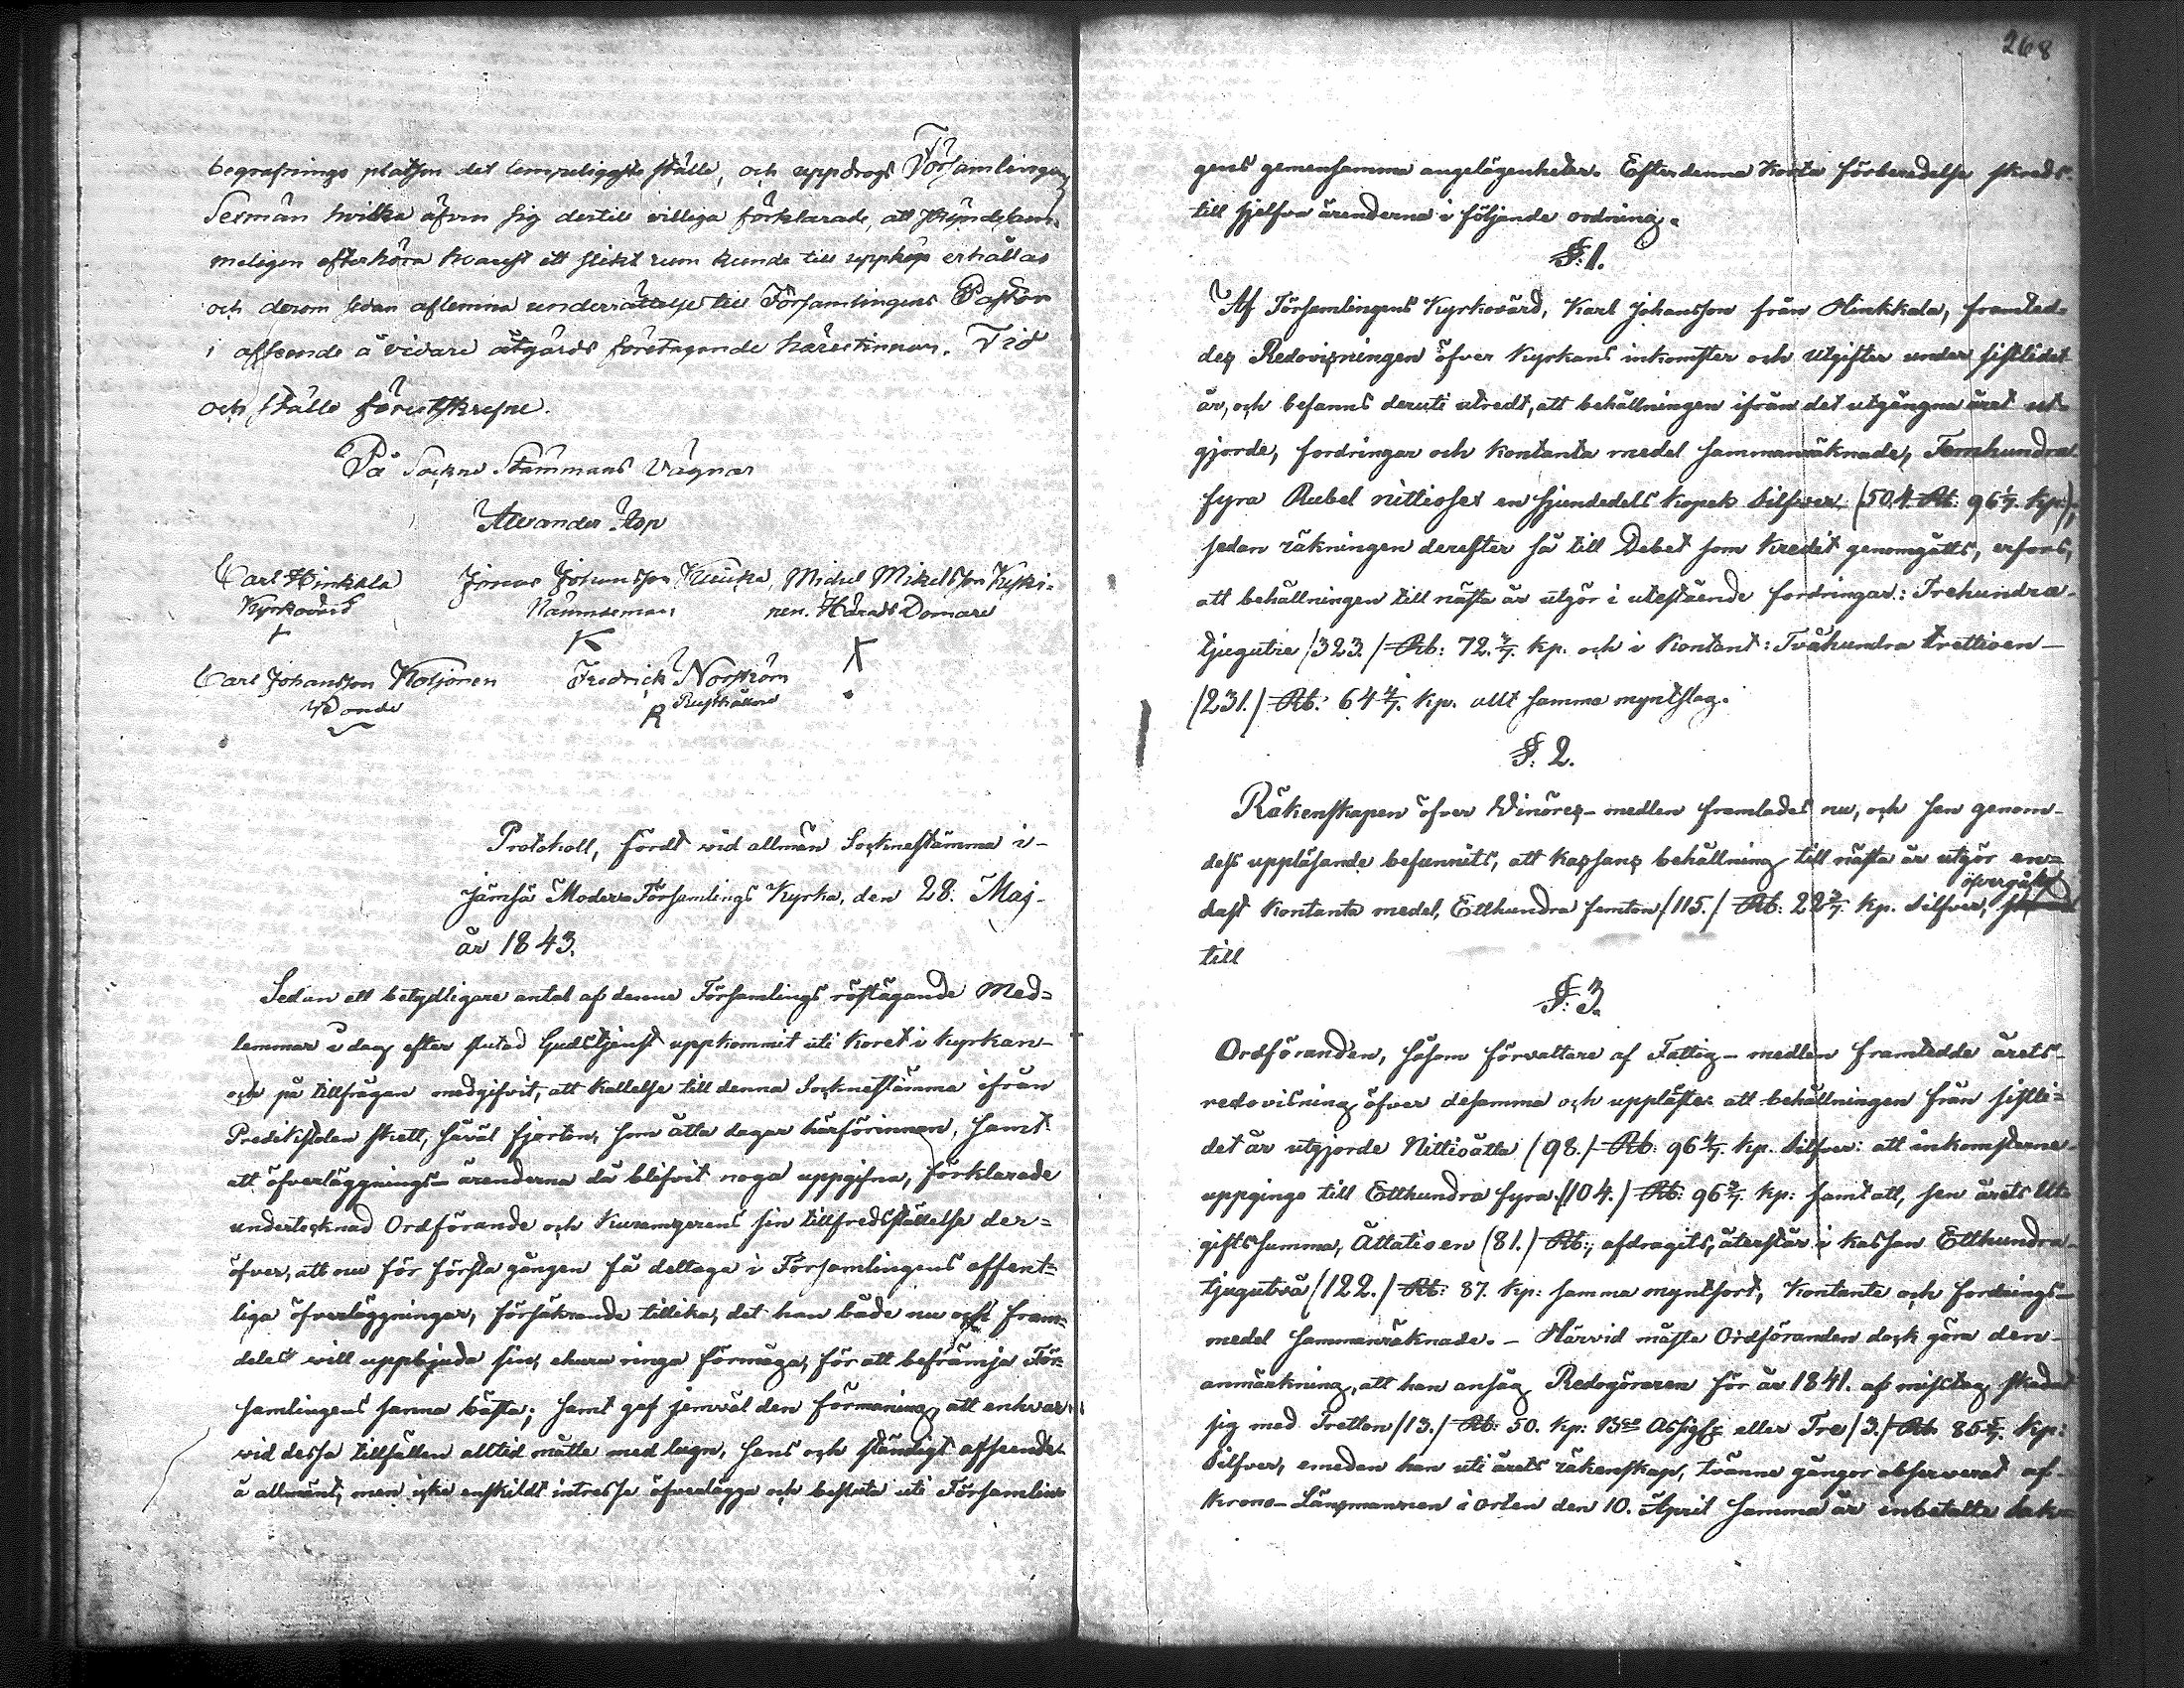 begrafnings platsen det lempeligaste ställe, och uppdrogs Församlingens
Sexmän hvilka äfven sig dertill villiga förklarade, att skyndesam-
meligen efterhöra hvarest ett slikt rum kunde till uppköp erhållas
och derom sedan aflemna underrättelse till Församlingens Pastor
i afseende å vidare åtgärds företagande härutinnan. Tid
och ställe förutskrefne.
På Sockne Stämmans vägnar
Alexander Asp
Carl Hinkkala Jonas Johansson Kuuka, Michel Mikelsson Kyki-
Kyrkovärd Nämndeman nen. Härads Domare
Carl Johansson Kotjonen Fredrick Norström
Bonde Rusthållare
Protokoll, fördt vid allmän Socknestämma i
Jämsä Moder-Församlings Kyrka, den 28. Maj
år 1843.
Sedan ett betydligare antal af denne Församlings röstägande Med=
lemmar i dag efter slutad Gudstjenst uppkommit uti Koret i Kyrkan
och på tillfrågan medgifvit, att kallelse till denna Socknestämma ifrån
Predikstolen skett, såväl fjorton, som åtta dagar härförinnan, samt
att öfverläggnings-ärenderna då blifvit noga uppgifna, förklarade
undertecknad Ordförande och sin tillfredsställelse der=
öfver, att nu för första gången få deltaga i Församlingens offent=
liga öfverläggningar, försäkrande tillika, det han både nu och fram-
deles vill uppbjuda sin, ehuru ringa förmåga, för att befrämja För-
samlingens sanna bästa; samt gaf jemväl den förmaning, att enhvar
vid dessa tillfällen alltid måtte med lugn, sans och ständigt afseende
å allmänt, men icke enskildt intresse öfverlägga och besluta uti Församlin-
268
gens gemensamma angelägenheter. Efter denna korta förberedelse skreds
till sjelfva ärenderna i följande ordning.
§. 1.
Af Församlingens Kyrkovärd, Karl Johansson från Hinkkala, framted-
des Redovisningen öfver Kyrkans inkomster och utgifter under sistlidet
år, och befanns deruti utredt, att behållningen ifrån det utgångna året ut-
gjorde, fordringar och kontanta medel sammanräknade, Femhundra
fyra Rubel nittiosex en sjundedels kopek silfver, (504. Rb: 96 1/7. kp);
sedan räkningen derefter så till Debet som Kredit genomgåtts, erfors,
att behållningen till nästa år utgör i utestående fordringar: Trehundra
tjugutre /323./ Rb: 72. 4/7. kp. och i Kontant: Tvåhundra trettioen
/231./ Rb: 64 4/7. kp. allt samma myntslag.
§. 2.
Räkenskapen öfver Vinöres-medlen framlades nu, och sen genom
dess uppläsande befunnits, att kassans behållning till nästa år utgör en=
dast kontanta medel, Etthundra femton /115./ Rb: 22 3/7. kp. silfver, öfvergick
till
§. 3.
Ordföranden, såsom förvaltare af Fattig-medlen framtedde årets
redovisning öfver desamma och upplästes att behållningen från sistli=
det år utgjorde Nittioåtta /98./ Rb: 96 4/7. kp. silfver: att inkomsterne
uppgingo till Etthundra fyra /104./ Rb: 96 3/7. kp: samt att, sen årets Ut-
giftssumma, Åttatioen (81.) Rb:, afdragits, återstår i kassan Etthundra
tjugutvå /122./ Rb: 87. kp: samma myntsort, kontante och fordrings-
medel sammanräknade. - Härvid måste Ordföranden dock göra den
anmärkning, att han ansåg Redogöraren för år 1841. af misstag skadat
sig med Tretton /13./ Rb: 50. kp: Bco Assign: eller Tre /3./ Rb. 85 5/7. kp:
silfver, emedan han uti årets räkenskap, tvänne gångor observerat af
Krono-Länsmannen i orten den 10. April samma år inbetalte sak-